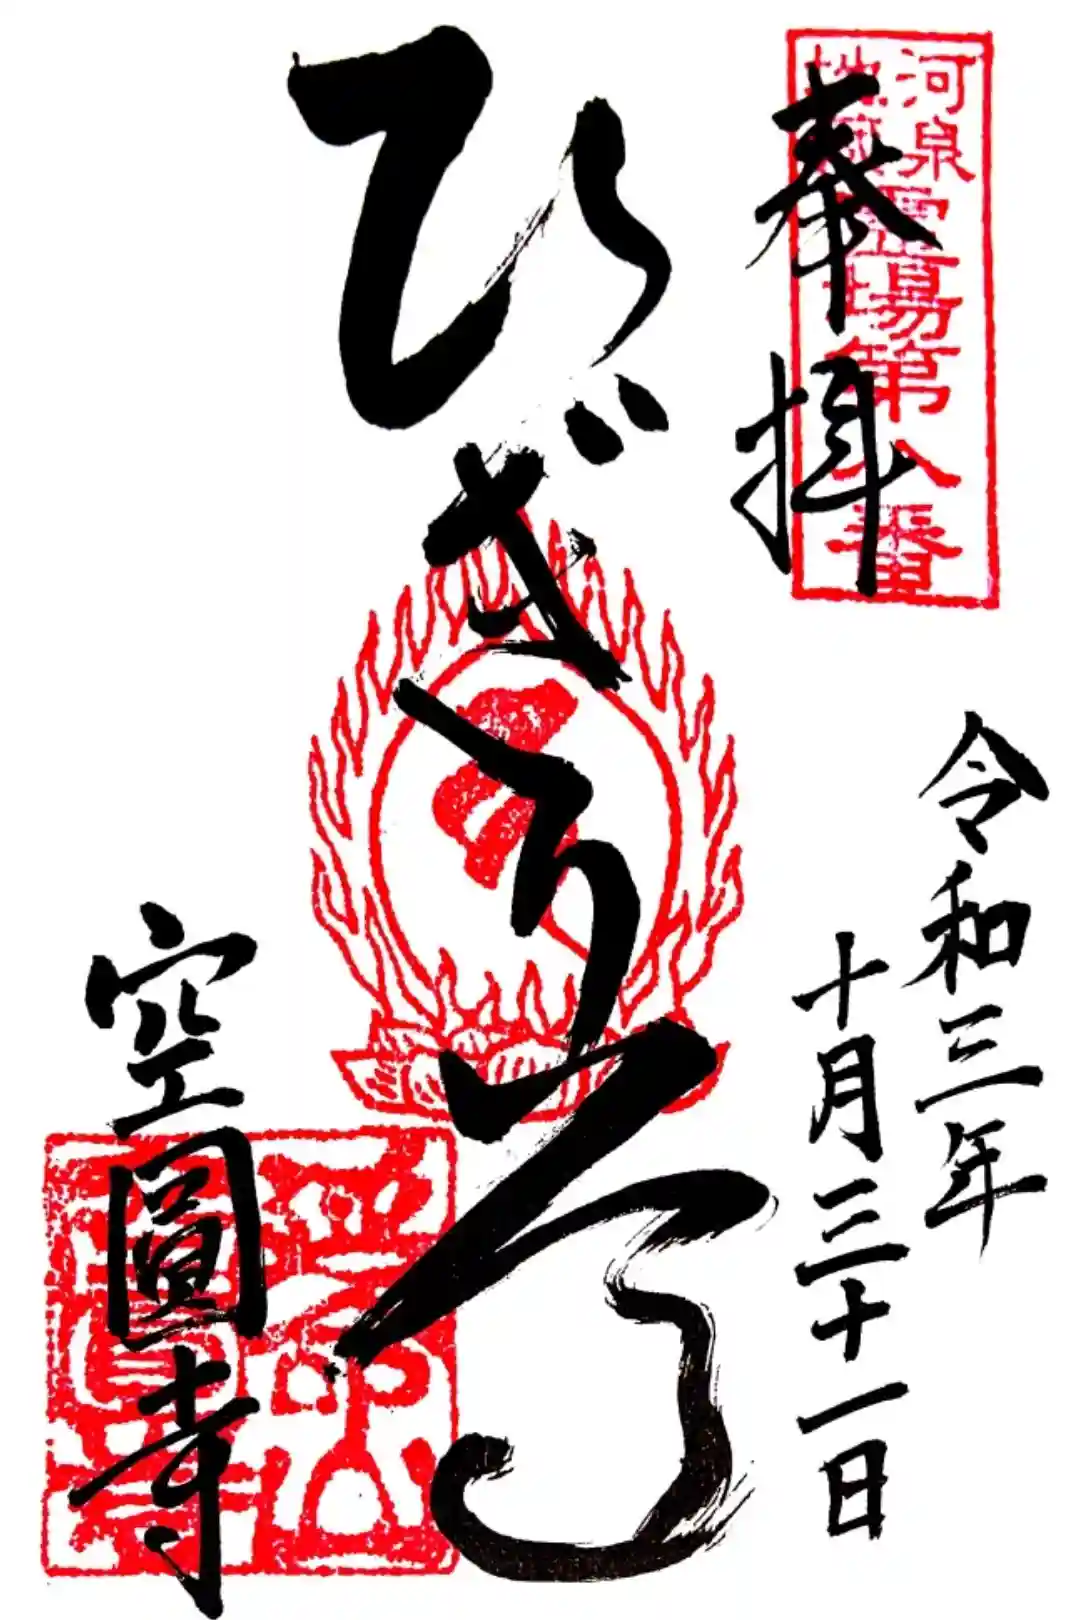 河泉
地蔵
霊場第八番
奉拝
令和三年
十月三十一日
ひぎり尊
空圓寺